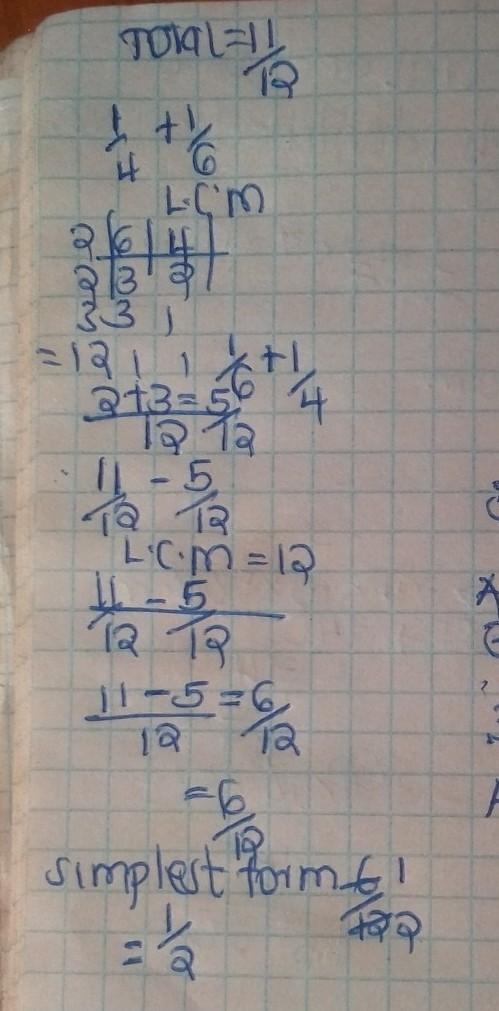 Total = 11/12
1/4 + 1/6
L.C.M
2 | 6 | 4
2 | 3 | 2
3 3 1
= 12 1 1 1/6 + 1/4
2+3/12 = 5/12
11/12 - 5/12
L.C.M = 12
11/12 - 5/12
11-5/12 = 6/12
= 6/12
simplest form 6/12 1/2
= 1/2